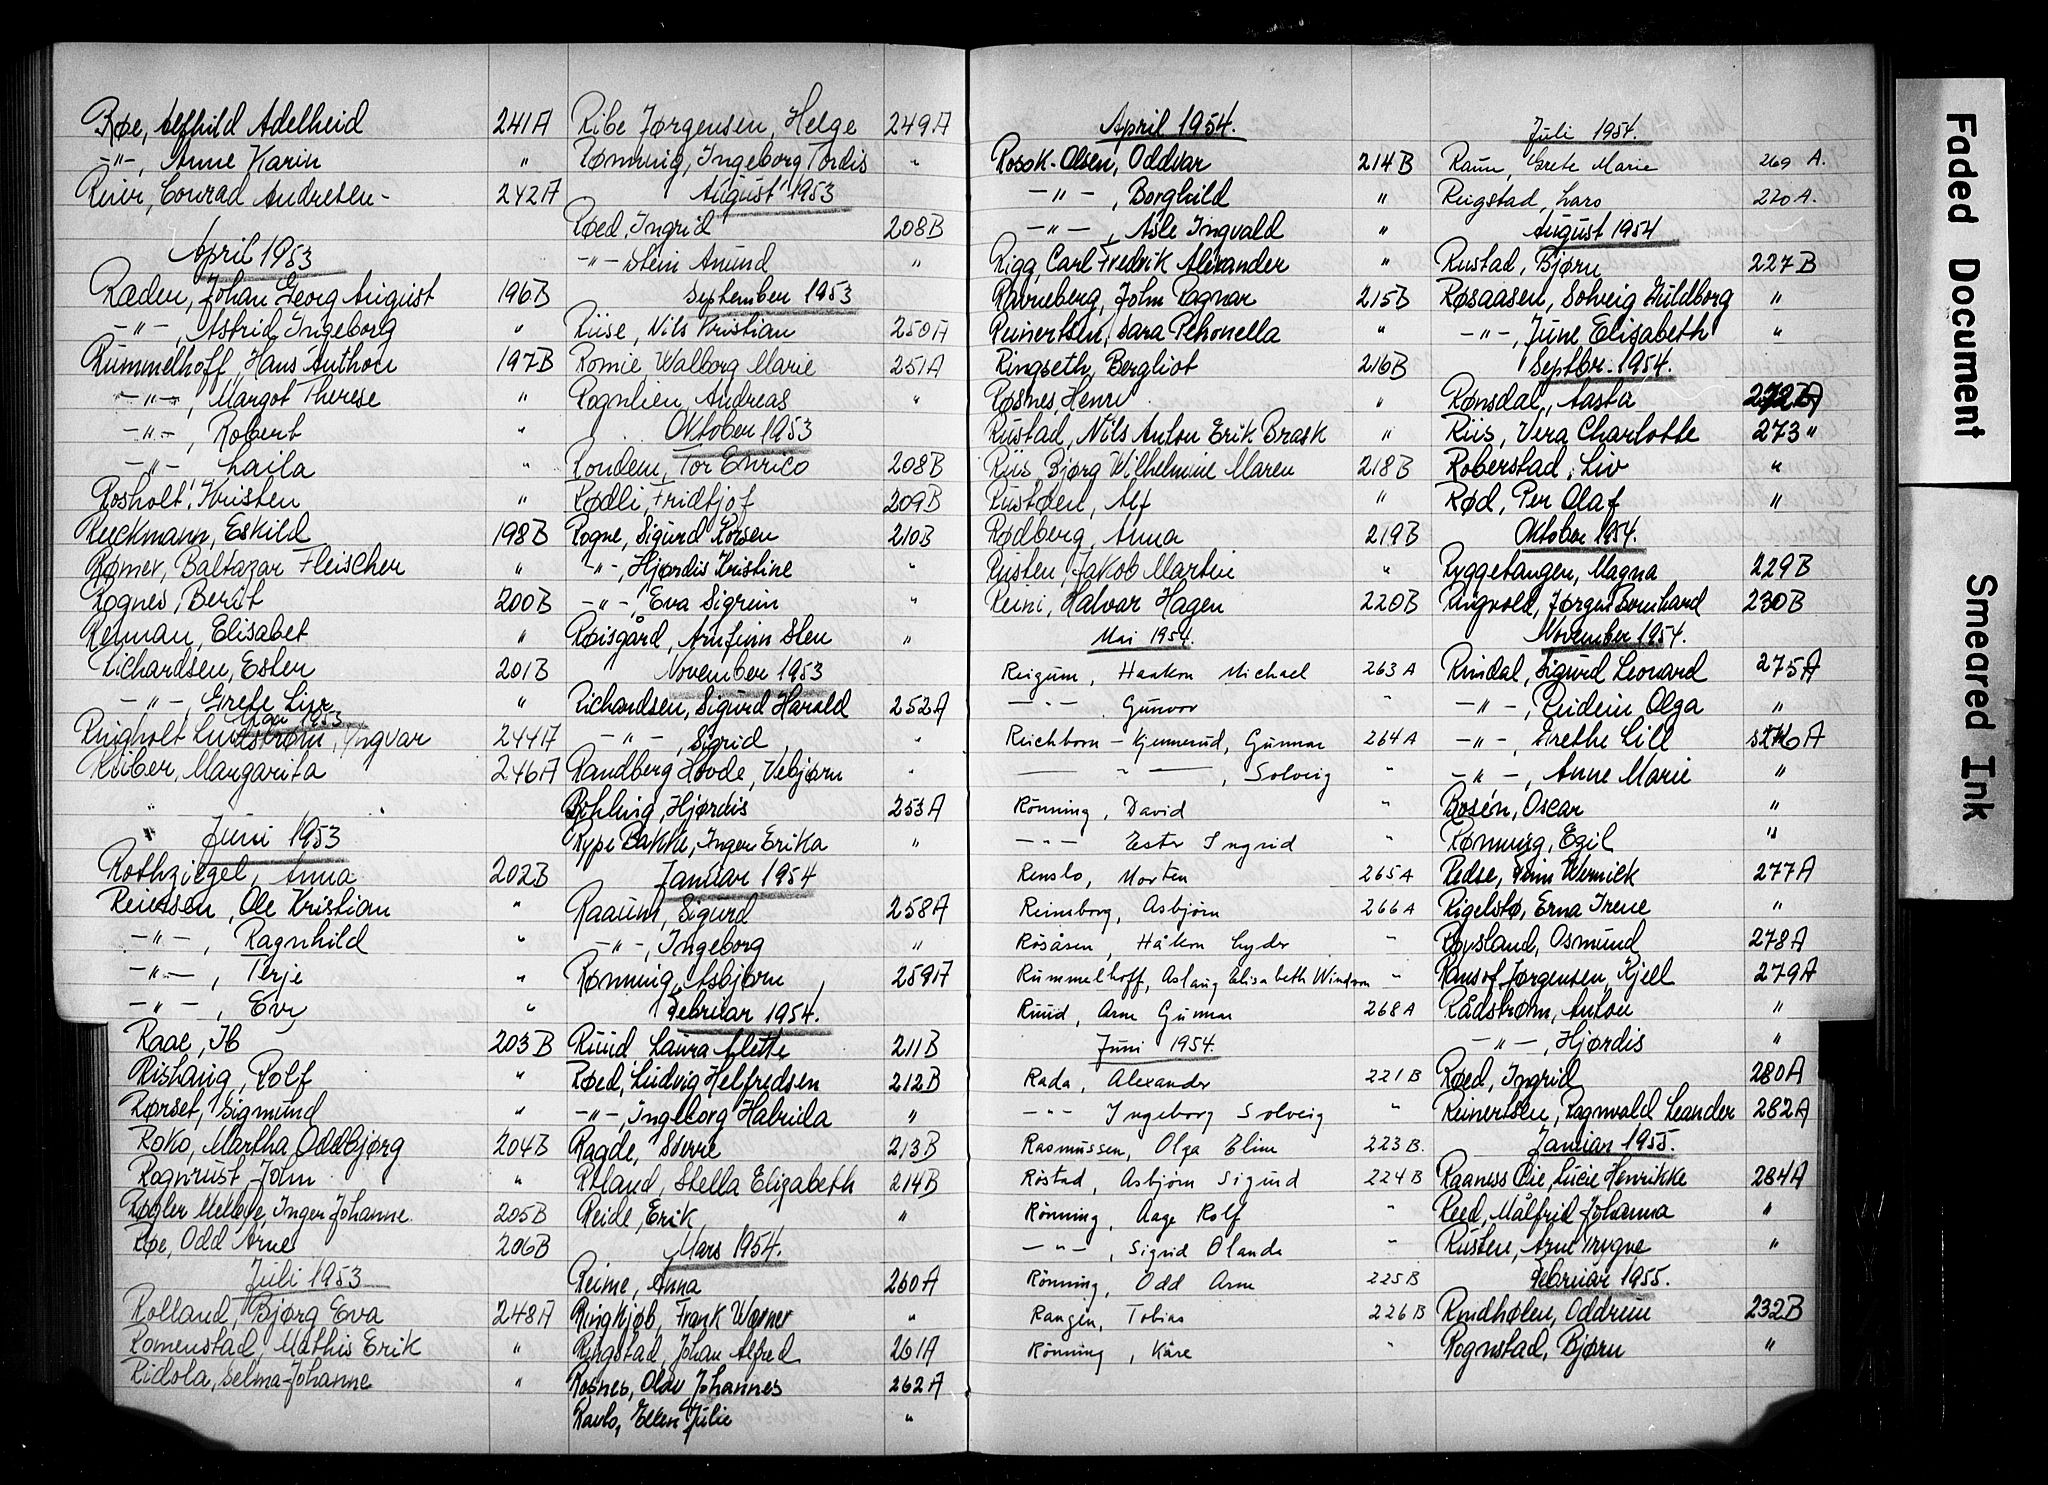 Røe, Alfhild Adelheid 241A
-"-, Anne Karin "
Conrad Andresen- 242A
April 1953
Raden, Johan Georg August 196B
-"-, Astrid Ingeborg "
Rummelhoff, Hans Anthon 197B
-"-, Margot Therese "
-"-, Robert "
-"- Laila "
Rosholt, Kristen "
Ruckmann, Eskild 198B
Rømer, Baltazar Fleischer "
Rognes, Berit 200B
Reiman, Elisabet "
Richardsen, Ester 201B
-"-, Grete Liv "
Mai 1953
Ringholt Lindstrøm, Yngvar 244A
Margarita 246A
Juni 1953
Rothziegel, Anna 202B
Reiersen, Ole Kristian "
-"-, Ragnhild "
-"-, Terje "
-"-, Eva "
Raae, Ib 203B
Rishaug, Rolf "
Rørset, Sigmund "
Roko, Martha Oddbjørg 204B
Rognrust, John "
Røgler Melleby, Inger Johanne 205B
Røe, Odd Arne 206B
Juli 1953
Rolland, Bjørg Eva 248A
Romenstad, Mathis Erik "
Ridola, Selma-Johanne "
Ribe Jørgensen, Helge 249A
Rønning, Ingeborg Tordis "
August 1953
Røed, Ingrid 208B
-"- Stein Amund "
September 1953
Riise, Nils Kristian 250A
Romie Walborg Marie 251A
Rognlien, Andreas "
Oktober 1953
Rondem, Tor Enrico 208B
Rødli, Fridtjof 209B
Rogne, Sigurd Korsen 210B
-"-, Hjørdis Kristine "
-"-, Eva Sigrun "
Røisgård, Arnfinn Sten "
November 1953
Richardsen, Sigurd Harald 252A
-"-, Sigrid "
Randberg Hovde, Vebjørn "
Hjørdis 253A
Rype Bakke, Inger Erika "
Januar 1954
Raaum, Sigurd 258A
-"-, Ingeborg "
Rønning, Asbjørn 259A
Februar 1954.
Ruud Laura Alette 211B
Røed, Ludvig Helfredsen 212B
-"-, Ingeborg Habrida "
Ragde, Sverre 213B
Roland, Stella Elizabeth 214B
Reide, Erik "
Mars 1954.
Reime, Anna 260A
Ringkjøb, Frank Werner "
Ringstad, Johan Alfred 261A
Rosnes, Olav Johannes 262A
Ravlo, Ellen Julie "
April 1954.
Rosok-Olsen, Oddvar 214B
-"-, Borghild "
-"-, Asle Ingvald "
Rigg, Carl Fredrik Alexander "
Ravneberg, John Ragnar 215B
Reinertsen, Sara Petronella "
Ringseth, Bergliot 216B
Røsnes, Henry "
Rustad, Nils Anton Erik Brask "
Riis, Bjørg Wilhelmine Maren 218B
Rustøen, Alf "
Rødberg, Anna 219B
Rusten, Jakob Martin "
Reini, Halvar Hagen 220B
Mai 1954.
Reigum, Haakon Michael 263 A
-"- Gunvor "
Reichborn-Kjennerud, Gunnar 264 A
-"-, Solveig "
Rönning, David "
-"- Ester Ingrid "
Renslo, Morten 265 A
Reinsborg, Asbjörn 266 A
Rösåsen, Håkon Lyder "
Rummelhoff, Aslaug Elisabeth Windson "
Ruud, Arne Gunnar 268 A
Juni 1954.
Rada, Alexander 221 B
-"- Ingeborg Solveig "
Rasmussen, Olga Eline 223 B.
Röstad, Asbjörn Sigurd 224 B
Rönning, Aage Rolf "
-"-, Sigrid Olanda "
Rönning, Odd Arne 225 B
Rangen, Tobias 226 B
Rönning, Kåre "
Juli 1954.
Raum, Grete Marie 269 A.
Ringstad, Lars 270 A.
August 1954
Rustad, Bjørn 227B
Røsaasen, Solveig Guldborg "
-"-, June Elizabeth "
Septbr. 1954.
Rønsdal, Aasta 272A
Riis, Vera Charlotte 273 "
Roberstad, Liv "
Rød, Per Olaf "
Oktober 1954.
Ryggetangen, Magna 229B
Ringvold, Jørgen Bernhard 230B
November 1954.
Rindal, Sigurd Leonard 275A
-"-, Reidein Olga "
-"-, Grethe Lill 276A
-"-, Anne Marie "
Rosén, Oscar "
Rønning, Egil "
Redse, Finn Wernick 277A
Rigelstø, Erna Irene "
Røysland, Osmund 278A
Ransof Jørgensen, Kjell 279A
Rådstrøm, Anton "
-"-, Hjørdis "
Røed, Ingrid 280A
Reinertsen, Ragnvald Leander 282A
Januar 1955.
Raaness Lie, Lucie Henrikke 284A
Reed, Målfrid Johanna "
Rusten, Arne Trygve "
Februar 1955.
Rundhølen, Oddrun 232B
Rognstad, Bjørn "
Faded Document
Smeared Ink